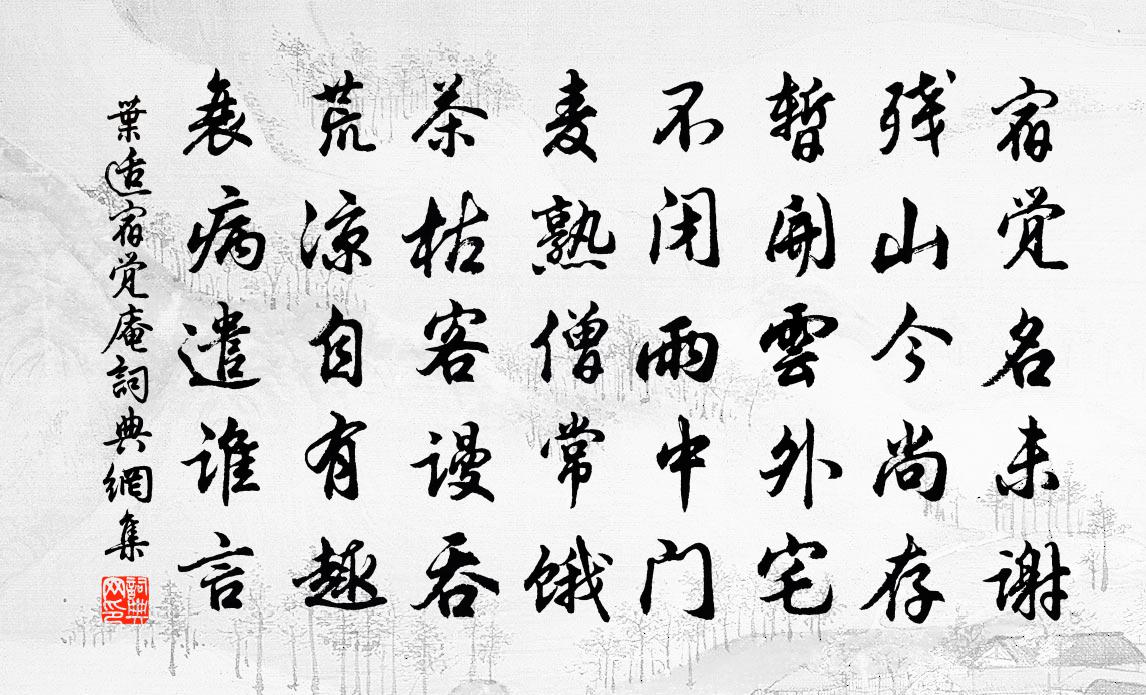 宿觉名未谢
残山今尚存
暂開雲外宅
不闭雨中门
麦熟僧常饿
茶枯客谩吞
荒凉自有趣
衰病遣谁言
葉适宿觉庵詞典網集
詞典